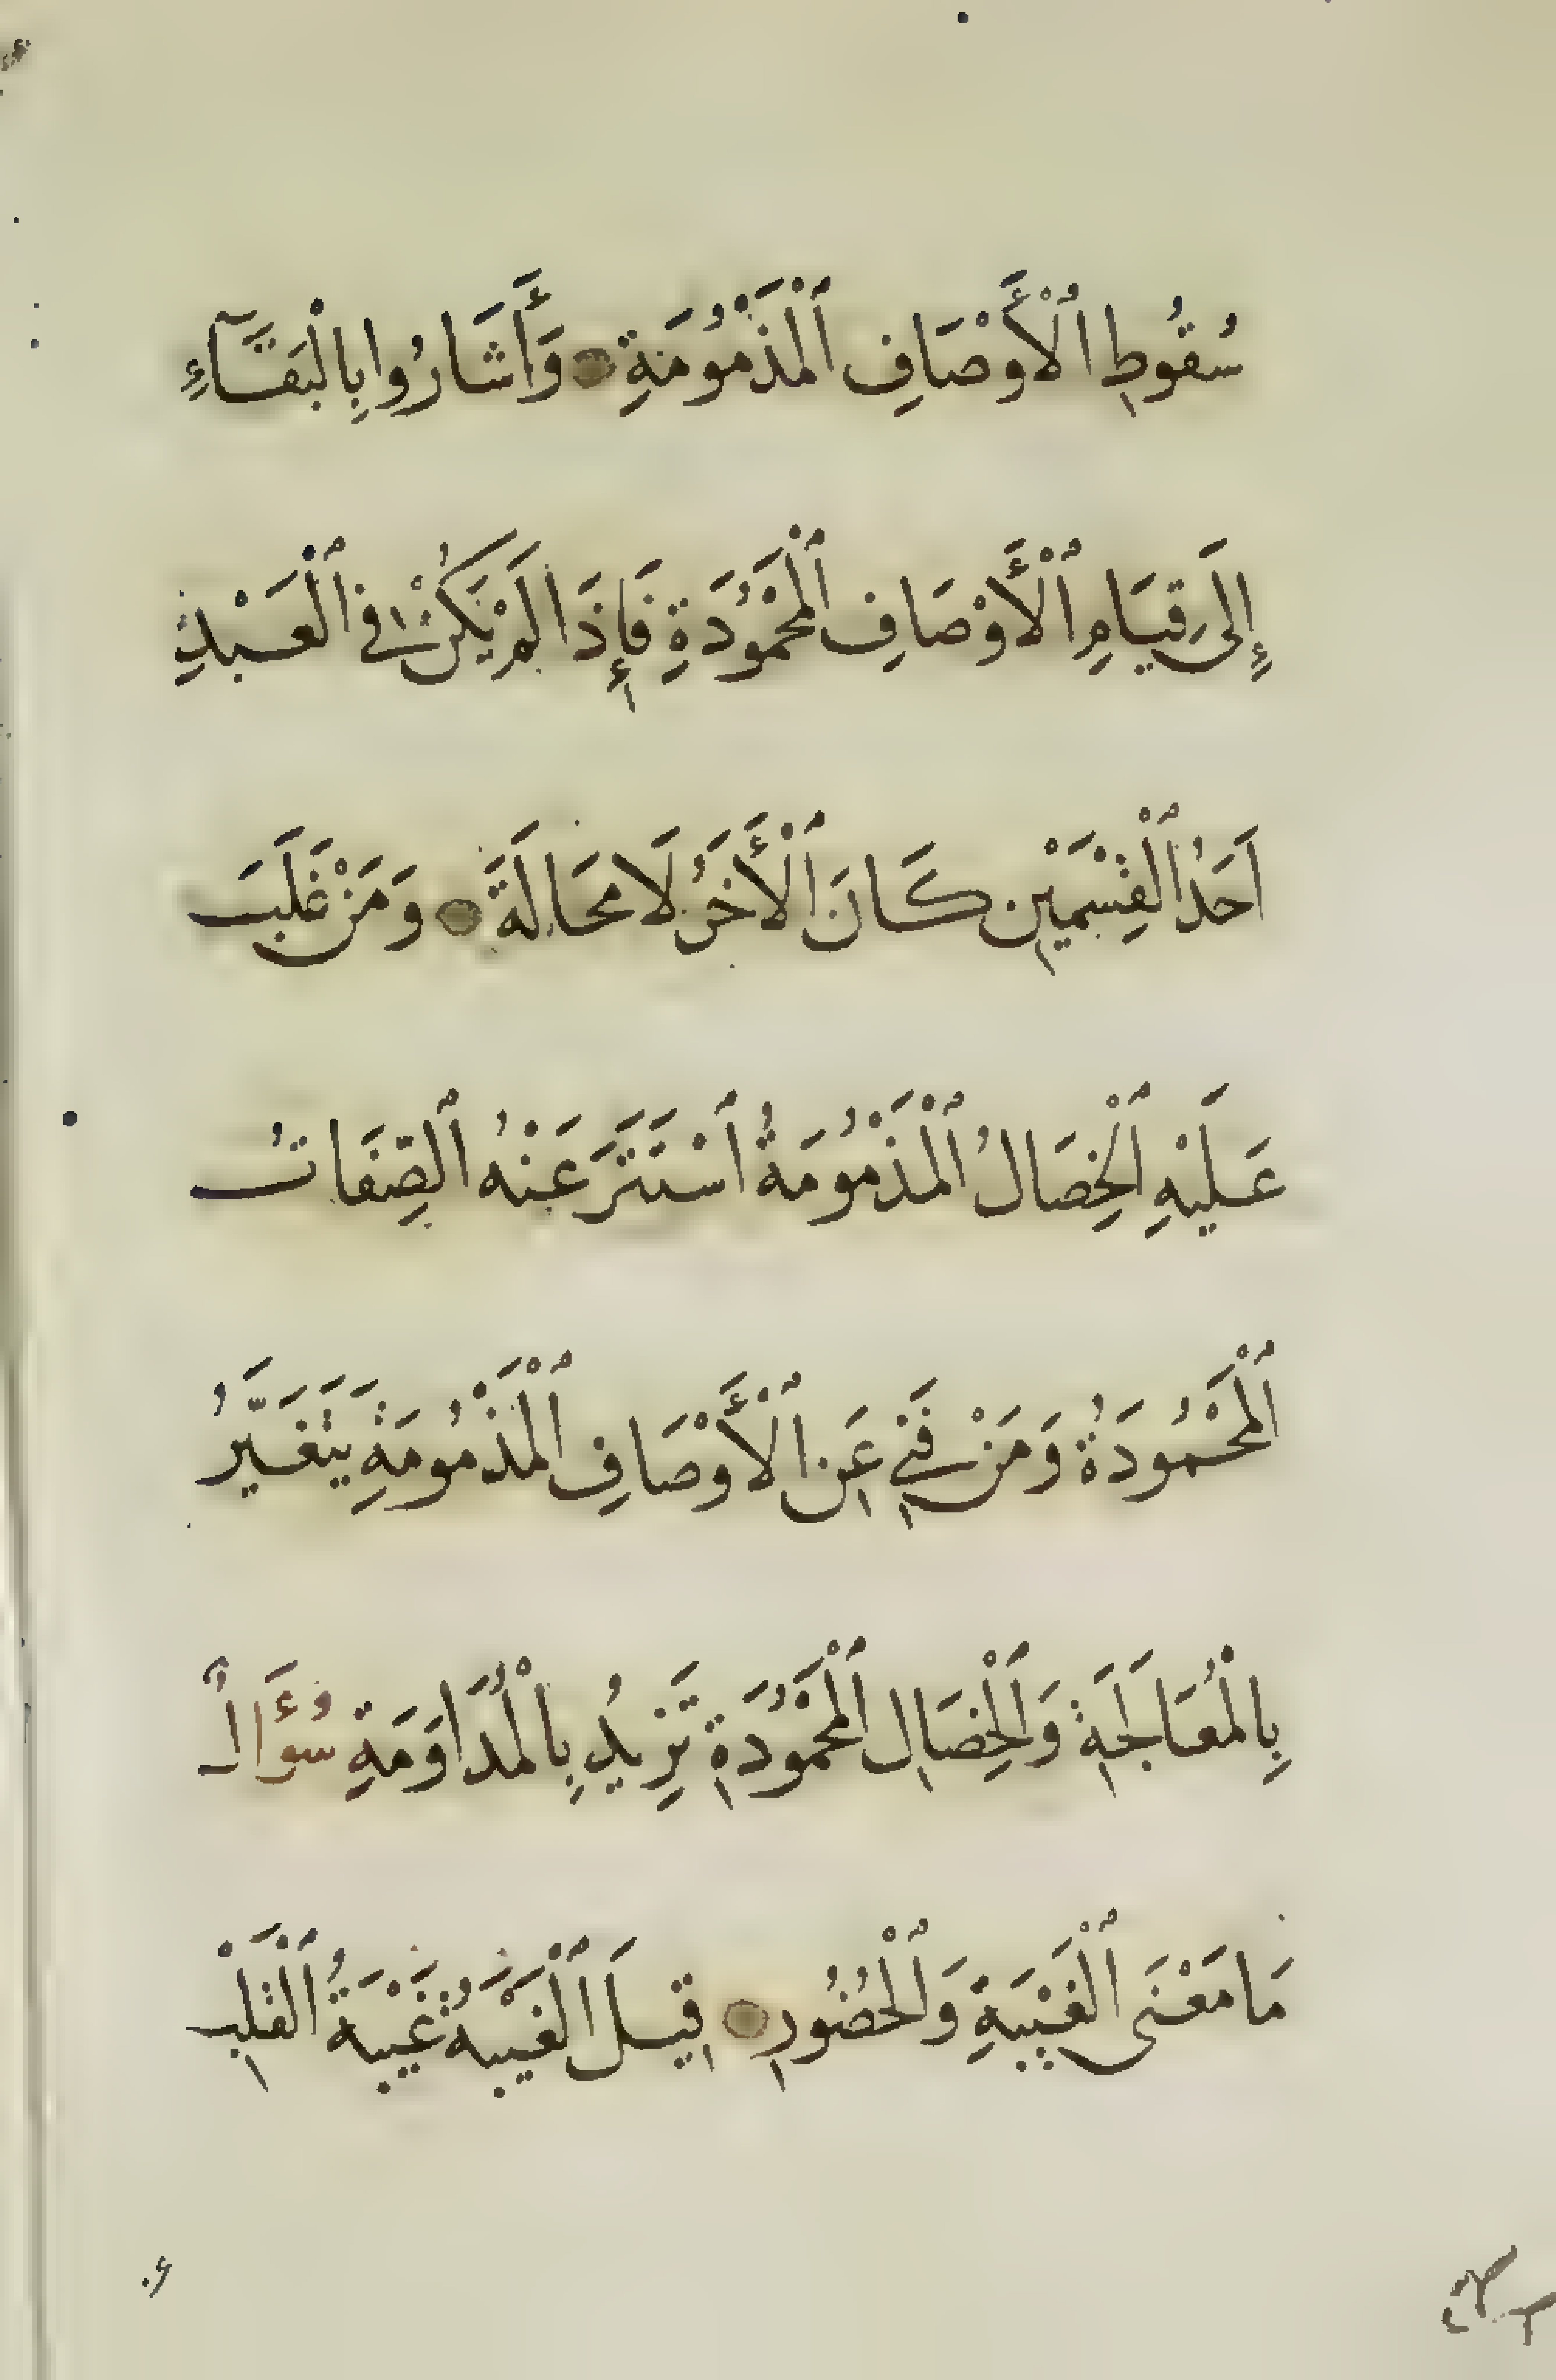 سُقُوطِ ٱلْأَوْصَافِ ٱلْمَذْمُومَةِ وَأَشَارُوا بِالْبَقَآءِ
إِلَى قِيَامِ ٱلْأَوْصَافِ ٱلْمَحْمُودَةِ فَإِذَا لَمْ يَكُنْ فِي ٱلْعَبْدِ
اَحَدُ ٱلْقِسْمَيْنِ كَانَ ٱلْأَخَرُ لَا مَحَالَةَ وَمَنْ غَلَبَ
عَلَيْهِ ٱلْخِصَالُ ٱلْمَذْمُومَةُ ٱسْتَتَرَ عَنْهُ ٱلصِّفَاتُ
ٱلْمَحْمُودَةُ وَمَنْ فَنِيَ عَنِ ٱلْأَوْصَافِ ٱلْمَذْمُومَةِ يَتَغَيَّرُ
بِالْمُعَالَجَةِ وَٱلْخِصَالِ ٱلْمَحْمُودَةِ تَزِيدُ بِالْمُدَاوَمَةِ سُؤَالٌ
مَا مَعْنَى ٱلْغَيْبَةِ وَٱلْحُضُورِ قِيلَ ٱلْغَيْبَةُ غَيْبَةُ ٱلْقَلْبِ